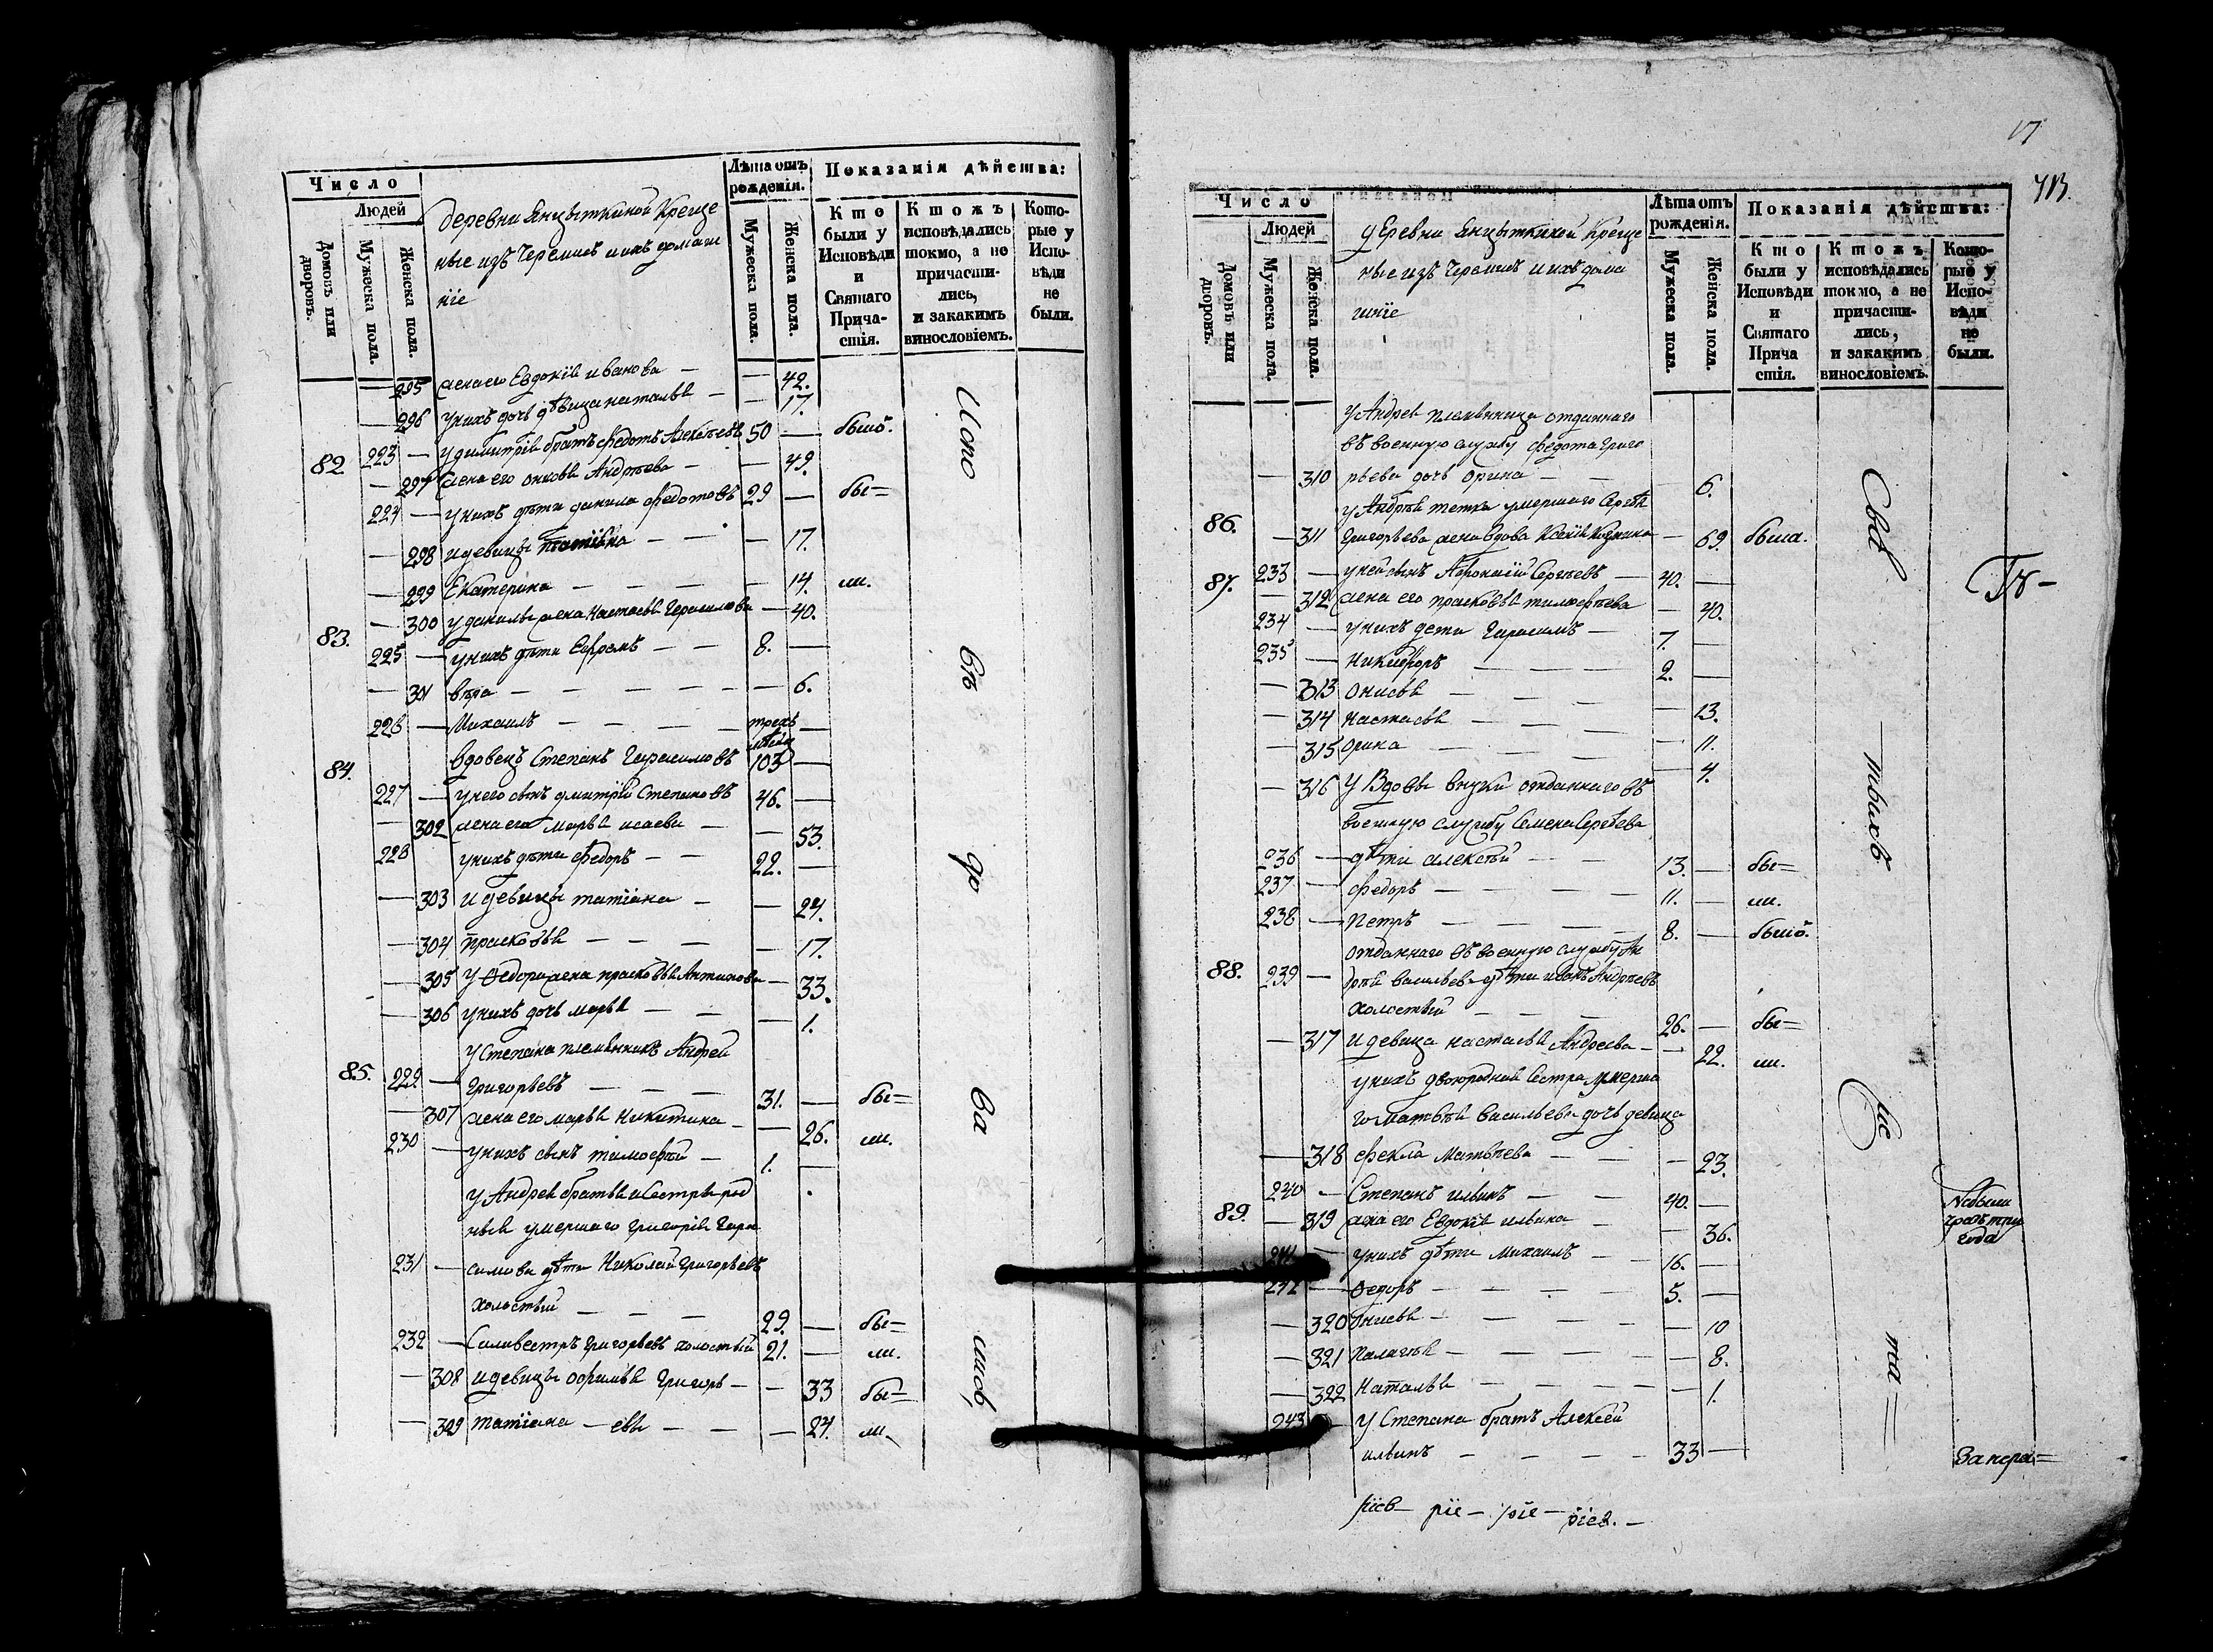 Число
Людей
Домовъ или дворовъ.
Мужеска пола.
Женска пола.
деревни Янцыткиной Креще
ные изъ Черемисъ и ихъ домаш
нїе
Лѣта отъ рожденїя.
Мужеска пола.
Женска пола.
Показанїя дѣйства:
Кто были у Исповѣди и Святаго Причастїя.
Ктожъ исповѣдались токмо, а не причастились, и закакимъ винословїемъ.
Которые у Исповѣди не были.
— 295 жена его Евдокїя иванова — — 42.
— 296 у нихъ дочь дѣвица наталья — — 17.
82 223 — у димитрїя братъ федотъ Алексѣевъ 50 — былъ.
— 297 жена его Андрѣева — — 49.
224 — у нихъ дѣти данила федотовъ 29 — бы=
— 298 и девицы татїяна — — — 17.
— 299 Екатерина — — — — 14. ли.
83. — 300 у данилы жена настасья Герасимова — 40.
225 — у нихъ дѣти Ефремъ — — 8. —
— 301 вѣра — — — — — 6.
226 — Михаилъ — — — трехъ —
84. вдовецъ Степанъ Герасимовъ 103 —
227 — у него сынъ дмитрїй Степановъ 46. —
— 302 жена его марья исаева — — 53.
228 у нихъ дѣти федоръ — — 22. —
— 303 и девицы татїяна — — 24.
— 304 прасковья — — — — 17.
— 305 у Федора жена прасковья Антипова — 33.
— 306 у нихъ дочь марья — — — 1.
у Степана племянникъ Андрей
85. 229. — григорьевъ — — 31. — бы=
— 307 жена его марья никитина — — 26. ли.
230 — у нихъ сынъ тимофей — 1. —
у Андрея братья и сестры род
ныя умершаго григорїя гера
231 — симова дѣти Николай григорьевъ
холостый — — — 29. — бы=
232 — Силивестръ григорьевъ холостый 21. — ли.
— 308 и девицы офимья григорь — — 33 бы=
— 309 татїяна — евы — — — 24. ли
Испо
вѣ
до
ва
лись
17
713.
Число
Людей
Домовъ или дворовъ.
Мужеска пола.
Женска пола.
деревни Янцыткиной Креще
ные изъ Черемисъ и ихъ дома
шнїе
Лѣта отъ рожденїя.
Мужеска пола.
Женска пола.
Показанїя дѣйства:
Кто были у Исповѣди и Святаго Причастїя.
Ктожъ исповѣдались токмо, а не причастились, и закакимъ винословїемъ.
Которые у Исповѣди не были.
у Андрея племянница отданнаго
въ военную службу федота григо
— 310 рьева дочь орина — — 6.
у Андрѣя тетка умершаго Сергѣя
86. — 311 григорьева жена вдова Ксенїя Козмина — 69. была.
87. 233 — у ней сынъ Сергѣевъ — 40. —
— 312 жена его прасковья тимофѣева — 40.
234 — у нихъ дети Герасимъ — 7. —
235 — Никифоръ — — — 2. —
— 313 онисья — — — — 13.
— 314 настасья — — — — 11.
— 315 орина — — — — 4.
— 316 у вдовы внуки отданнаго въ
военную службу Семена Сергѣева
236 — дѣти алексѣй — — 13. — бы=
237 — федоръ — — — 11. — ли.
238 — петръ — — — — 8. — былъ.
отданнаго въ военную службу Ан
88. 239 — дрѣя васильева дѣти иванъ Андрѣевъ
холостый — — — 26. — бы=
— 317 и девица настасья Андреева — — 22. ли.
у нихъ двоюродная сестра умерша
го матвѣя васильева дочь девица
— 318 фекла матвѣева — — — 23.
89. 240 — Степанъ ильинъ — — 40. —
— 319 жена его Евдокїя ильина — — 36.
241 — у нихъ дѣти Михаилъ — 16. —
242 — Федоръ — — — — 5. —
— 320 Онисья — — — — — 10
— 321 палагѣя — — — — — 8.
— 322 наталья — — — — — 1.
243 — у Степана братъ Алексей
ильинъ — — — — 33 —
Свя
тыхъ
Хис
та=
Тѣ—
Небыли
чрезъ три
года
За нера=